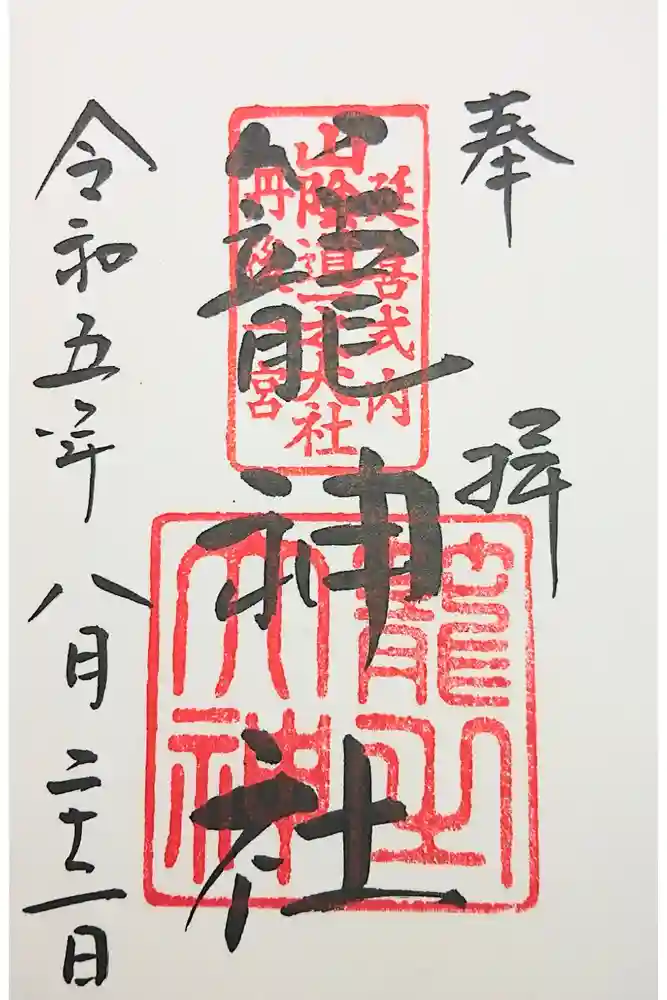 奉拝
延喜式内
山陰道一之大社
丹後一宮
籠神社
令和五年八月二十二日